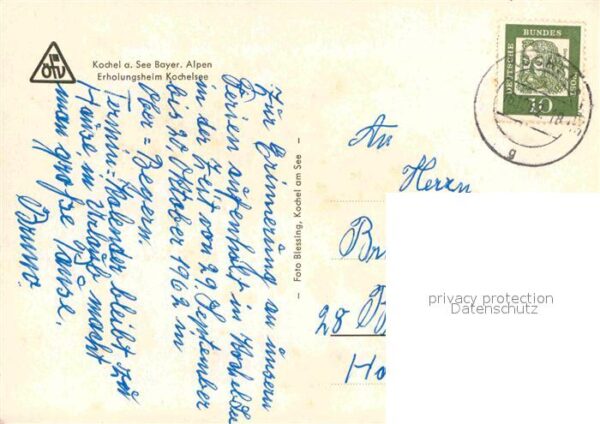 ÖTV
Kochel a. See Bayer. Alpen
Erholungsheim Kochelsee
Zur Erinnerung an unsern
Ferien aufenthalt in Kochel See
in der Zeit vom 29. September
bis 20 Oktober 1962 in
Ober=Bayern.
Termin=Kalender bleibt zu
Hause, in Urlaub macht
man große Pause.
Bruno.
– Foto Blessing, Kochel am See –
DEUTSCHE
BUNDES
10
An
Herrn
Br
28 B
Ho
privacy protection
Datenschutz